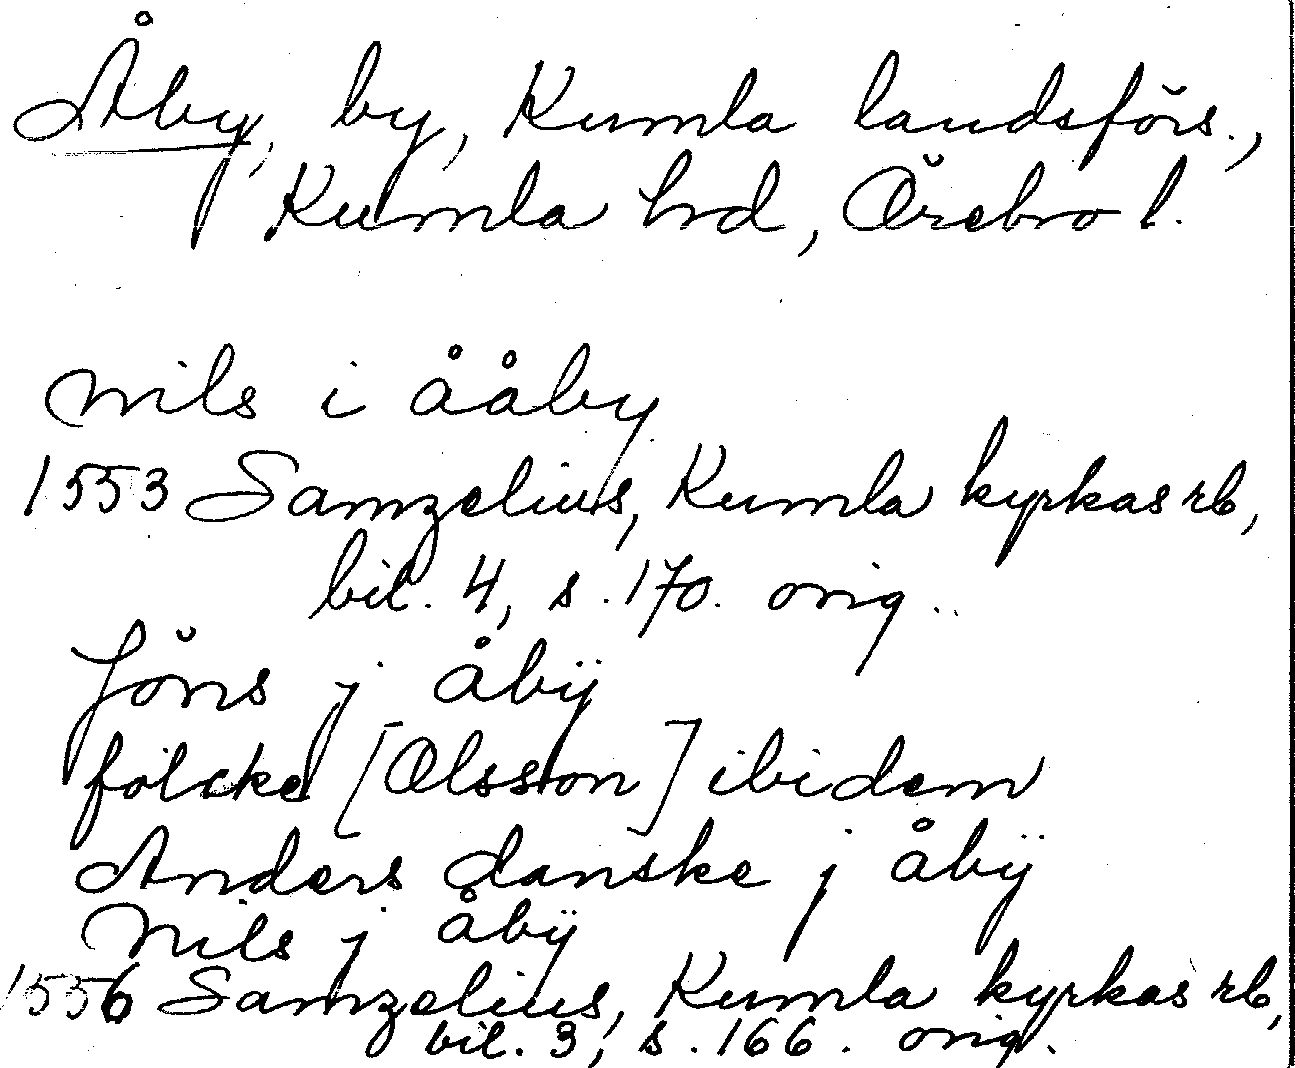 Åby, by, Kumla landsförs.,
Kumla hd, Örebro l.
Nils i ååby
1553 Samzelius, Kumla kyrkas rb,
bil. 4, s. 170. orig.
Jöns j åbÿ
folcke [Olsson] ibidem
Anders danske j åbÿ
Nils j åbÿ
1556 Samzelius, Kumla kyrkas rb,
bil. 3, s. 166. orig.